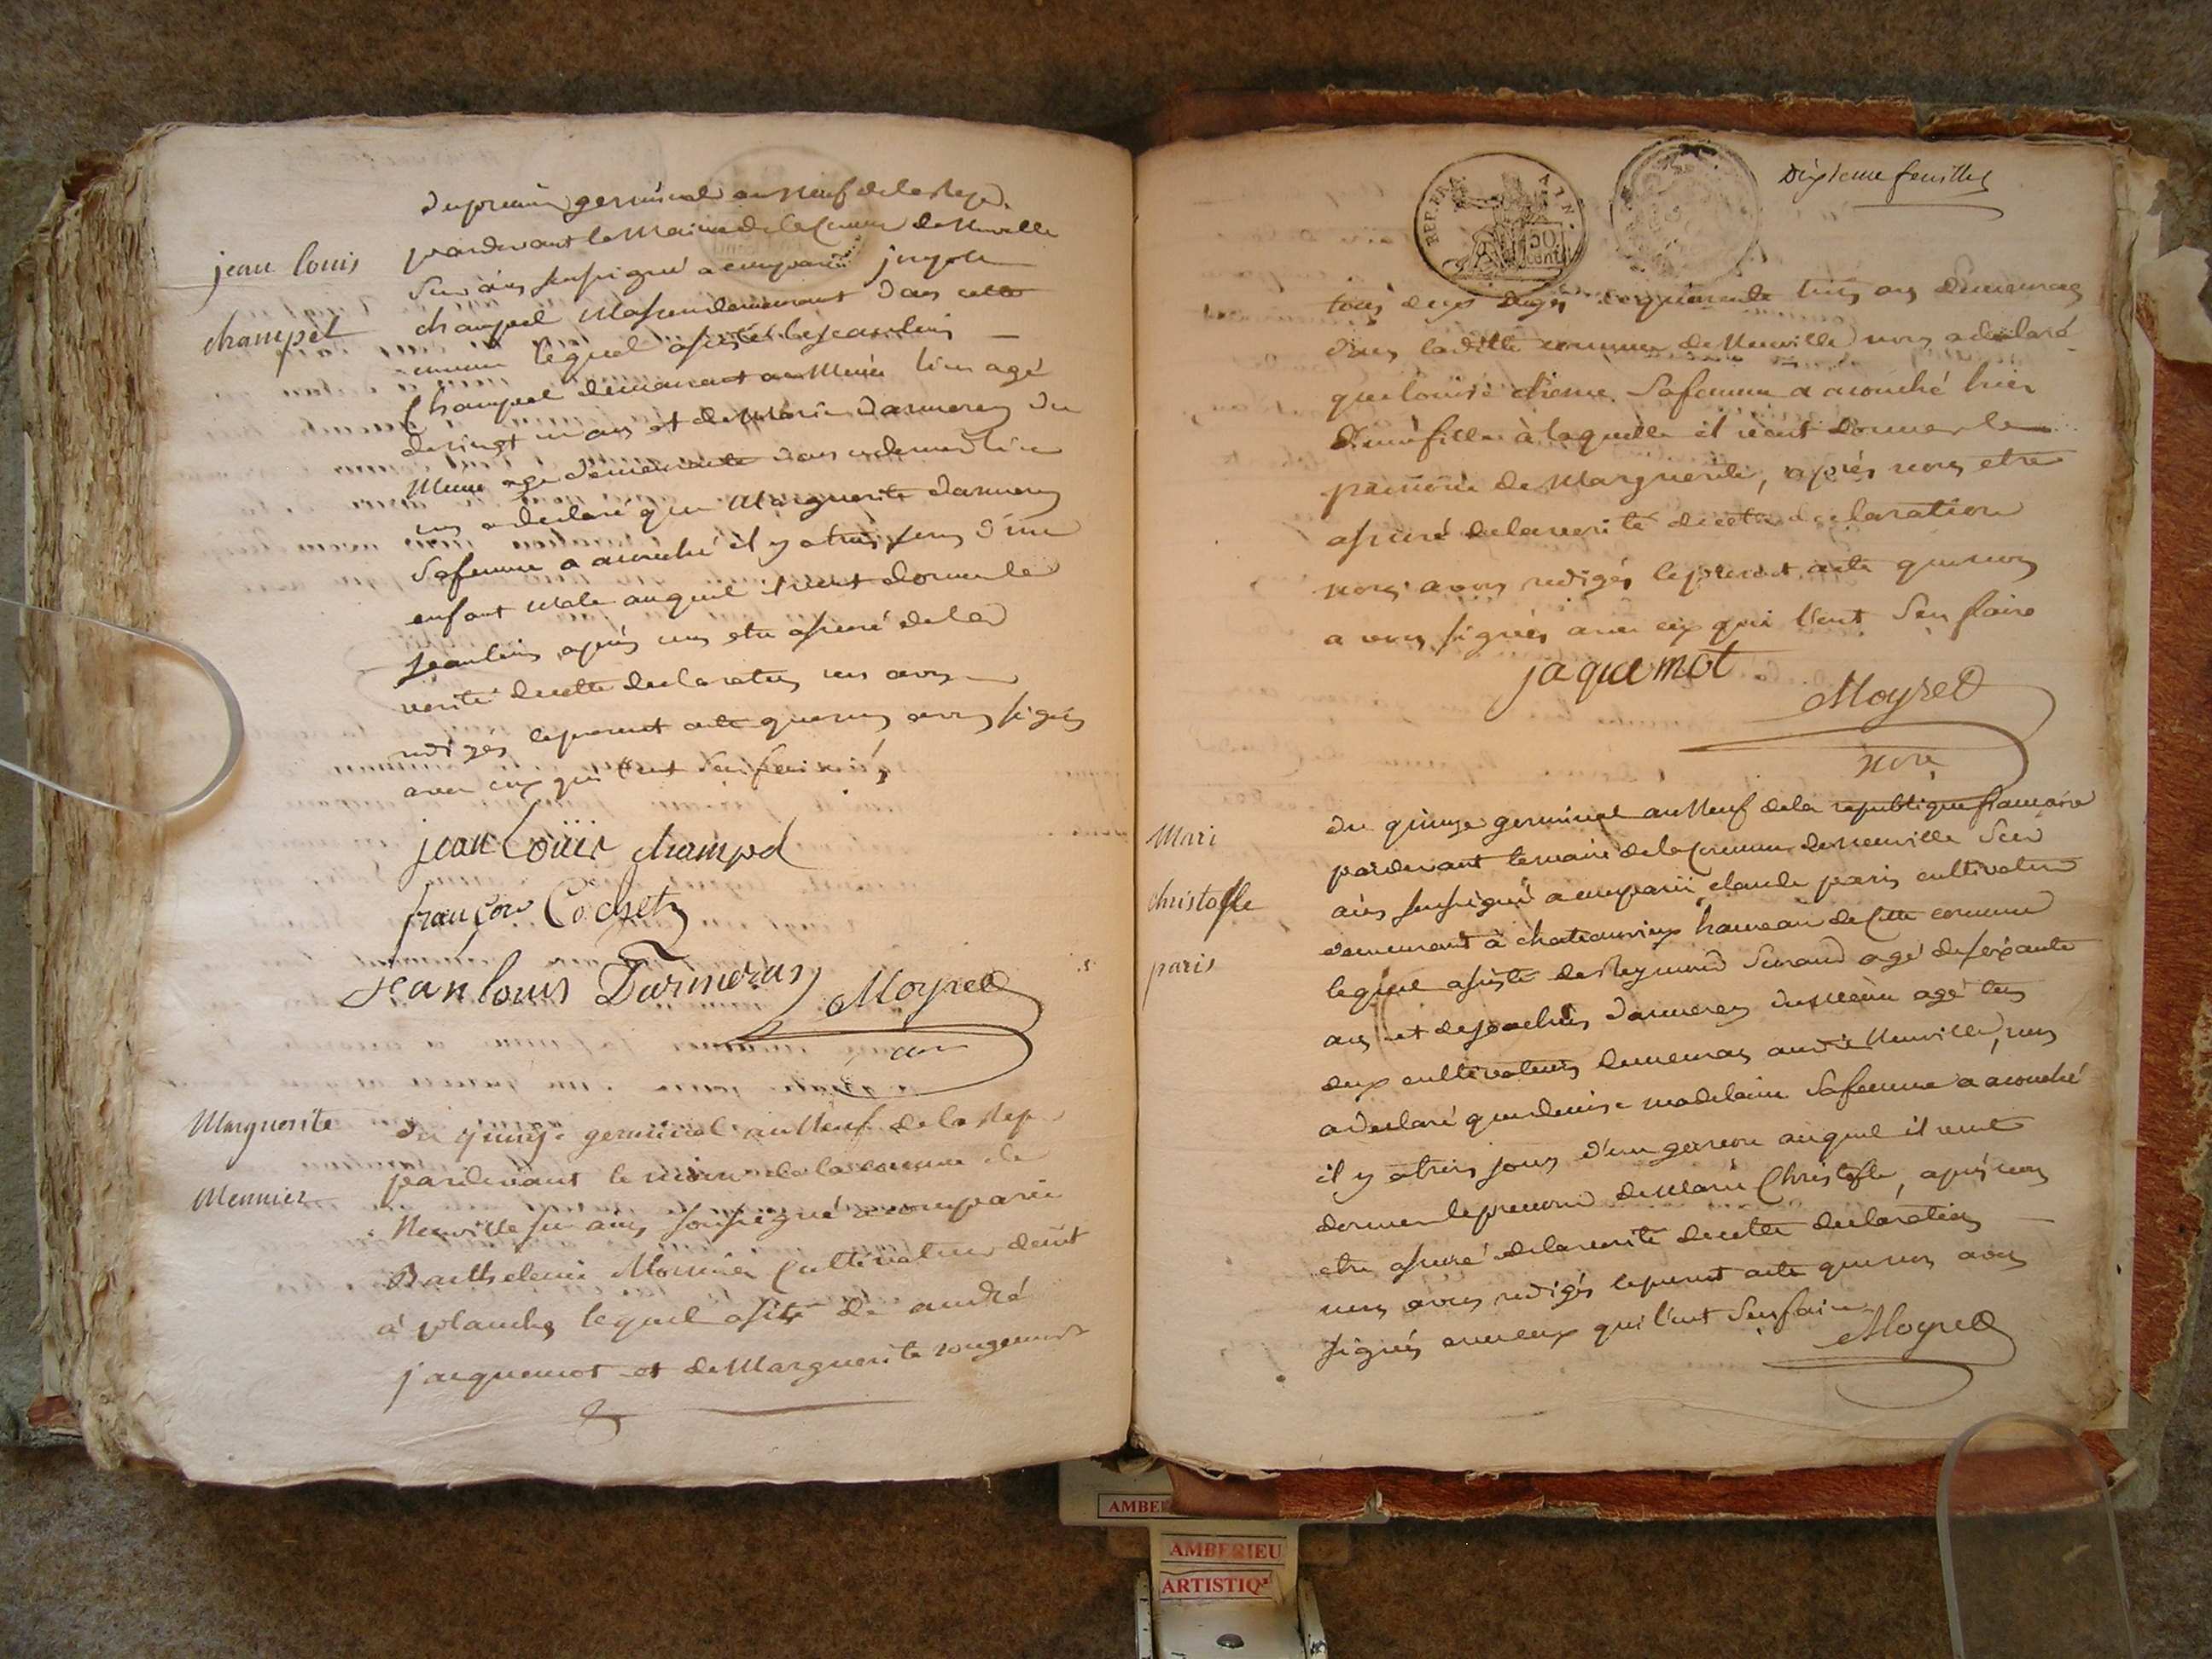 du premier germinal an neuf de la Rep.
jean louis
champel
pardevant le Maire de la Comune de Neuville
Sur ains soussigné a comparu joseph
champel Mason demeurant dans cette
comune lequel assisté de jean louis
Champel demeurant au Meme lieu agé
de vingt un ans et de Marie darmeran du
Meme age demeurante dans ce deme lieu
nous a declaré que Marguerite darmeran
Sa femme a acouché il y a trois jours d'un
enfant Male auquel il veut donner le
jean louis, aprés nous etre assuré de la
verité de cette declaration nous avons
redigés le present acte que nous avons signés
avec eux qui l'ont seu faire
jean Loüis champel
françois Cochet
jean louis Darmeran
Moyret
Marguerite
Meunier
du quinze germinal an Neuf de la Rep
pardevant le maire de la comune de
Neuville sur ains soussigné a comparu
Barthelemi Monnier Cultivateur demt
à planches lequel assité de andré
jacquemot et de Marguerite rougemont
Dixieme feuillet
REP. FRA. AIN.
50
cent.
tous deux agés cinquante trois ans demeurans
dans la ditte comune de Neuville nous a declaré
que louise chesne Sa femme a acouché hier
d'une fille à laquelle il veut donner le
prenom de Marguerite, aprés nous etre
assuré de la verité de cette declaration
nous avons redigés le present acte que nous
avons signés avec eux qui l'ont seu faire
jaquemot
Moyret
Mari
christofle
paris
du quinze germinal an Neuf de la republique francaise
pardevant le maire de la Comune de neuville sur
ains soussigné a comparu claude paris cultivateur
demeurant à chateauvieux hameau de cette comune
lequel assisté de Reymond Durand agé de soixante
ans et de joachin darmeran du même age tous
deux cultivateurs demeurans au dit Neuville, nous
a declaré que denise madelaine Sa femme a acouché
il y a trois jours d'un garcon auquel il veut
donner le prenom de Marie Christofle, aprés nous
etre assuré de la verité de cette declaration
nous avons redigés le present acte que nous avons
signés avec eux qui l'ont seu faire
Moyret
AMBE
AMBERIEU
ARTISTIQ